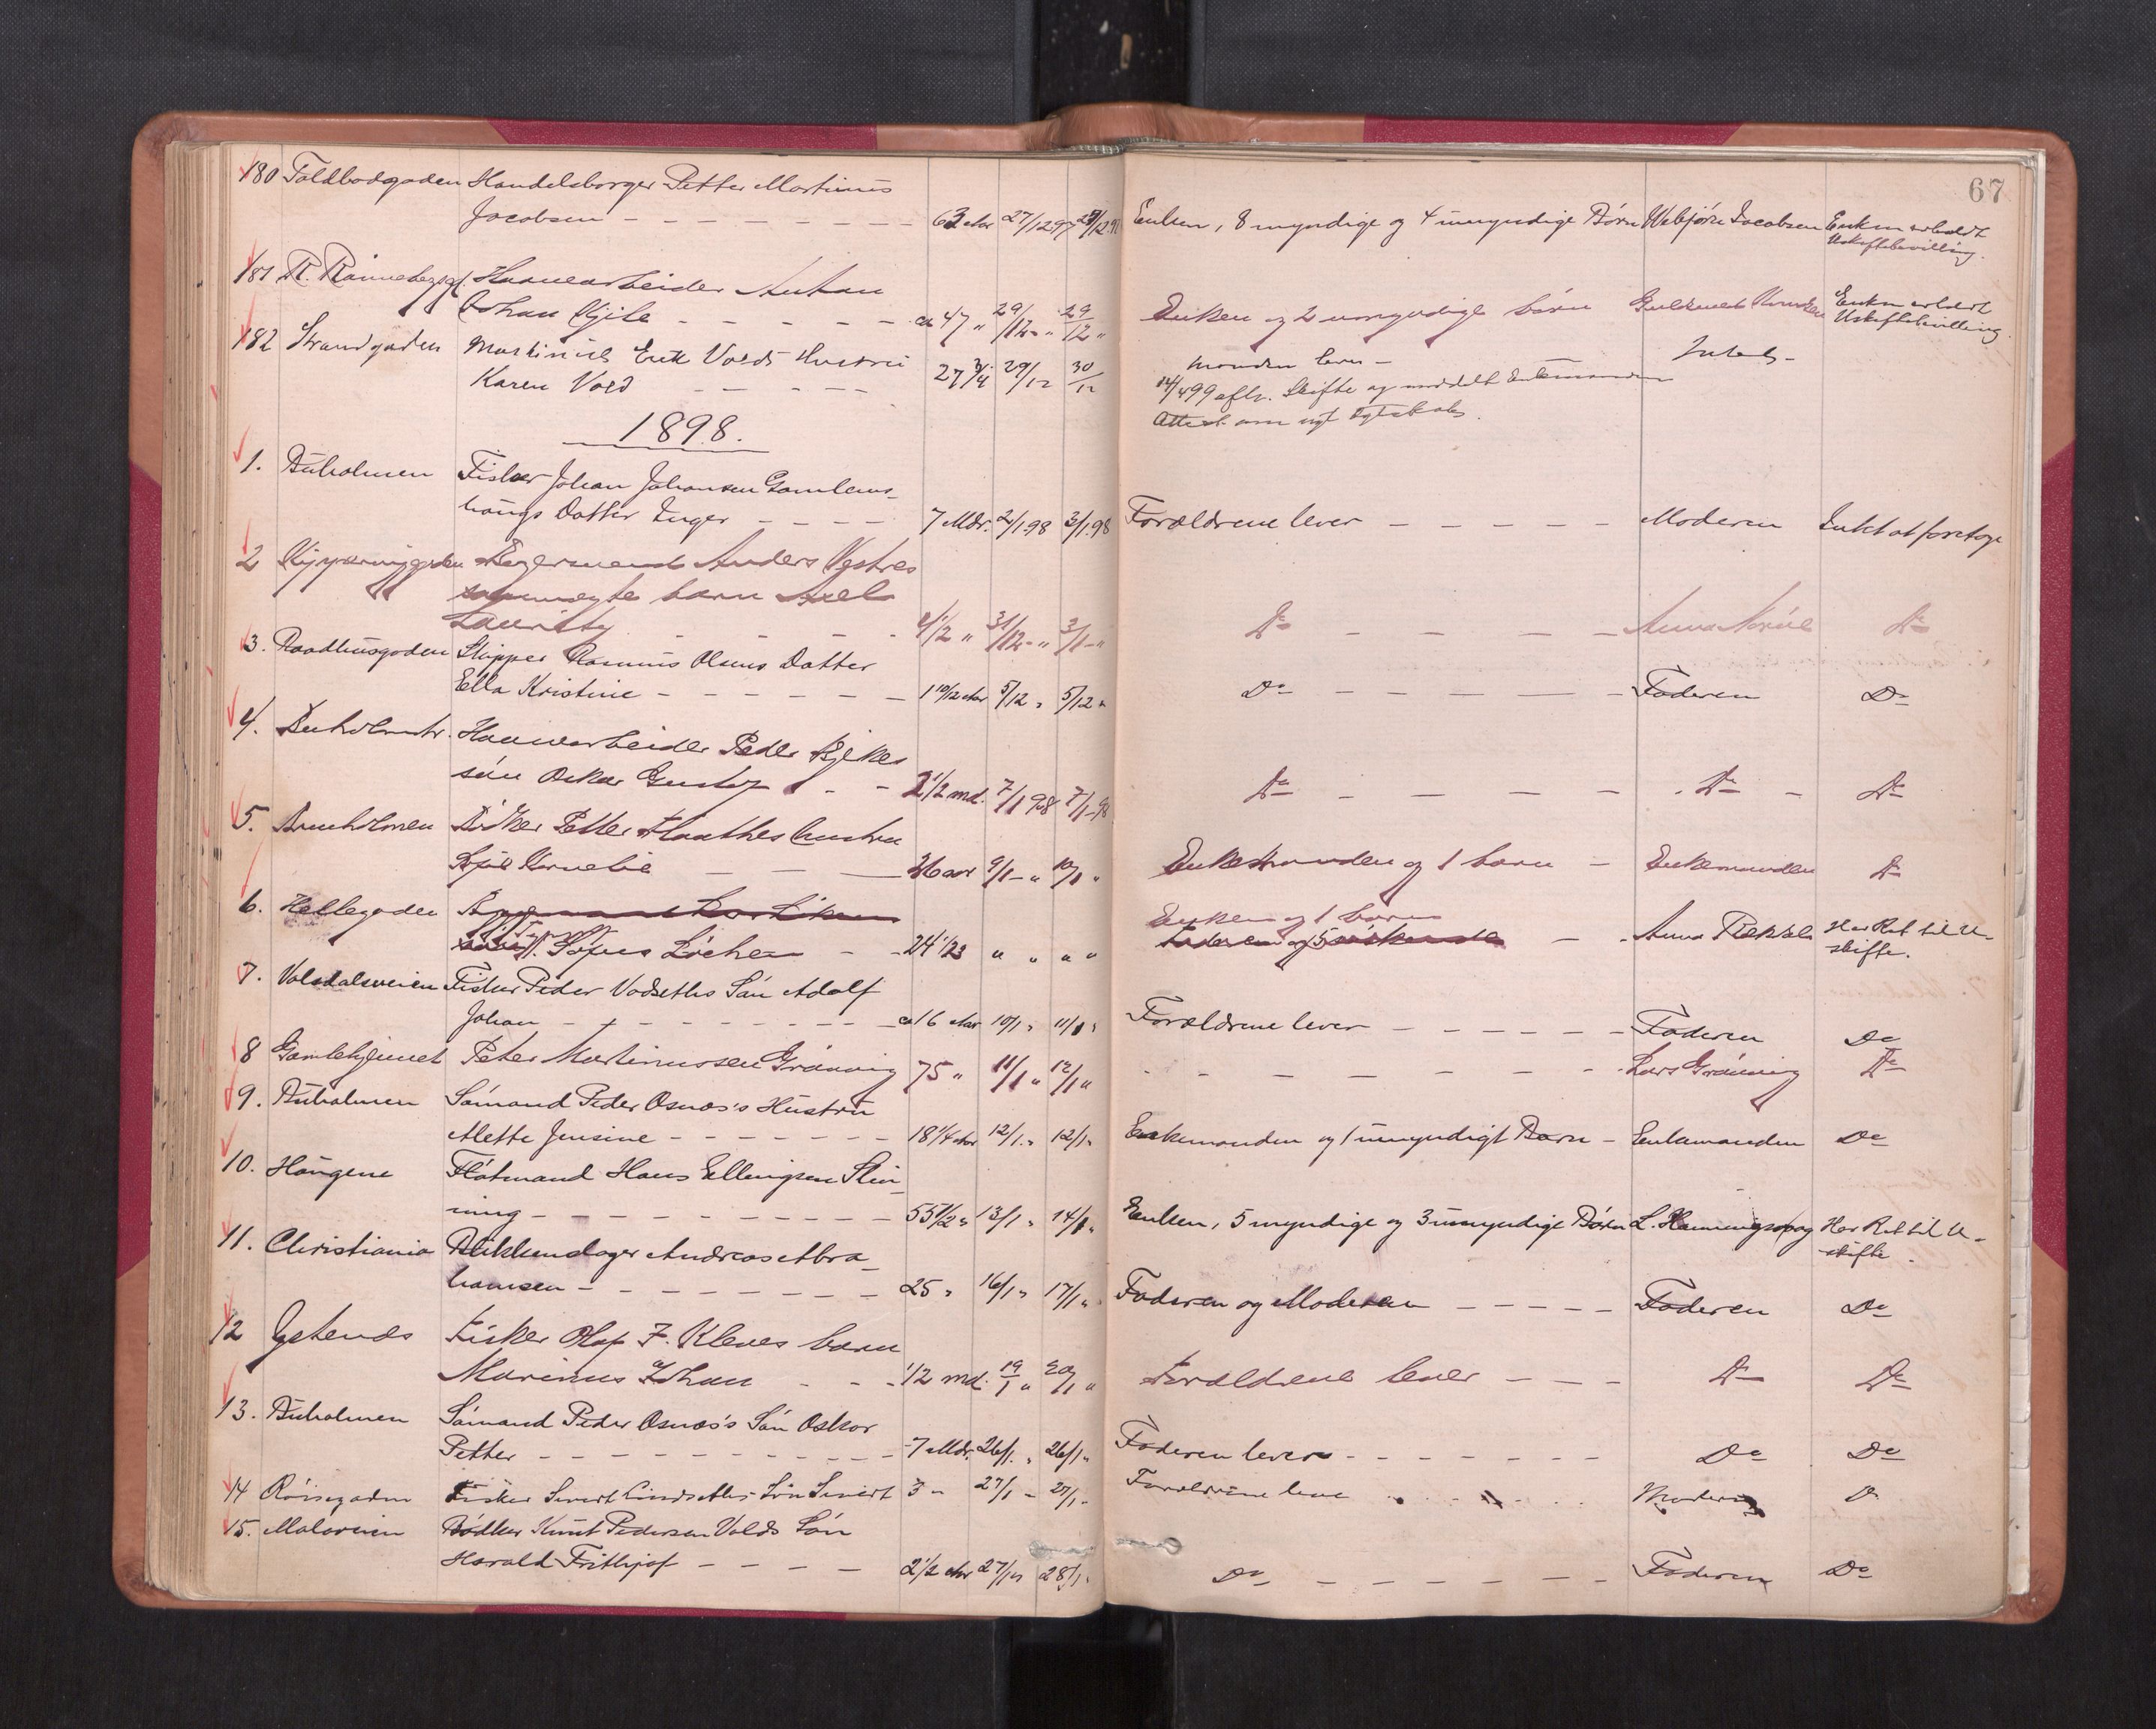 67
180 Toldbodgaden Handelsborger Petter Martinus
Jacobsen – – – – – – – 63 Aar 27/12 97 29/12 97 Enken, 8 myndige og 4 umyndige Børn Webjørn Jacobsen Enken erholdt
Uskiftebevilling.
181 R. Rønnebergsg. Havnearbeider Anton
Johan Kjile – – – – – ca 47 " 29/12 – " 29/12 " Enken og 2 umyndige børn Enken erholdt
Uskiftebevilling
182 Strandgaden Martinius Erik Volds Hustru
Karen Vold – – – – – 27 3/4 29/12 30/12 Manden lever – Intet –
14/4 99 afh. Skifte og meddelt Enkemanden
Attest om nyt Egteskab.
1898.
1. Buholmen Fisker Johan Johansen Gamlems-
haugs Datter Inger – – – – 7 Mdr. 2/1 98 3/1 98 Forældrene lever – – – – – Moderen Intet at foretage
2 Kipervikgaden Anders
børn Axel
Lauritz – – – 4 1/2 " 31/12 – " 3/1 – " Do – – – – Anna Do
3. Raadhusgaden Skipper Rasmus Olsens Datter
Ella Kristine – – – – – – 1 10/12 Aar 5/12 " 5/12 " Do – – – – – Faderen Do
4. Buholmstr. Havnearbeider Peder
søn Oskar Gustav – – 2 1/2 md. 7/1 98 7/1 – 98 Do – – – – – Do – Do
5. Buholmen Bødker Petter Hustru
Kornelie – – – 36 aar 9/1 – " 10/1 " Enkemanden og 1 barn – Enkemanden Do
6. Hellegaden
Enken og 1 barn
Søfus Løcken – – 24 1/23 " " " " Faderen og 5 søskende – Anna Rekkel Har Ret til U-
skifte.
7. Volsdalsveien Fisker Peder Vadseths Søn Adolf
Johan – – – – – – – – ca 16 Aar 10/1 " 11/1 " Forældrene lever – – – – – Faderen Do
8 Gamlehjemet Peter Martinussen Grønning 75 " 11/1 " 12/1 " – – – – – – – Lars Grønning Do
9. Buholmen Sømand Peder Osnæs's Hustru
Mette Jensine – – – – – – – 18 1/4 Aar 12/1 " 12/1 " Enkemanden og 1 umyndigt Barn – Enkemanden Do
10. Haugene Flotmand Hans Ellingsen Slin-
ning – – – – – – – – – 55 1/2 " 13/1 " 14/1 " Enken, 5 myndige og 3 umyndige Børn L. Har Ret til U-
skifte.
11. Christiania Blikkenslager Andreas Abra-
hamsen – – – – – – – – 25 " 16/1 " 17/1 " Faderen og Moderen – – – – – Faderen Do
12 Gjetenæs Fisker Olaf F. Kleves barn
Marinus Johan – – – 1/2 md. 19/1 " 20/1 " Forældrene lever – – – Do Do
13. Buholmen Sømand Peder Osnæs's Søn Oskar
Petter – – – – – – – – – – 7 Mdr. 26/1 " 26/1 " Faderen lever – – – – – – – Do Do
14 Røisegaden Fisker Sivert Lindseths Søn Sivert 3 " 27/1 – 27/1 – Forældrene leve Moderen D
15. Moloveien Bødker Knut Pedersen Volds Søn
Harald Frithjof – – – – 2 1/2 Aar 27/1 " 28/1 " Do – – – – – – – Faderen Do